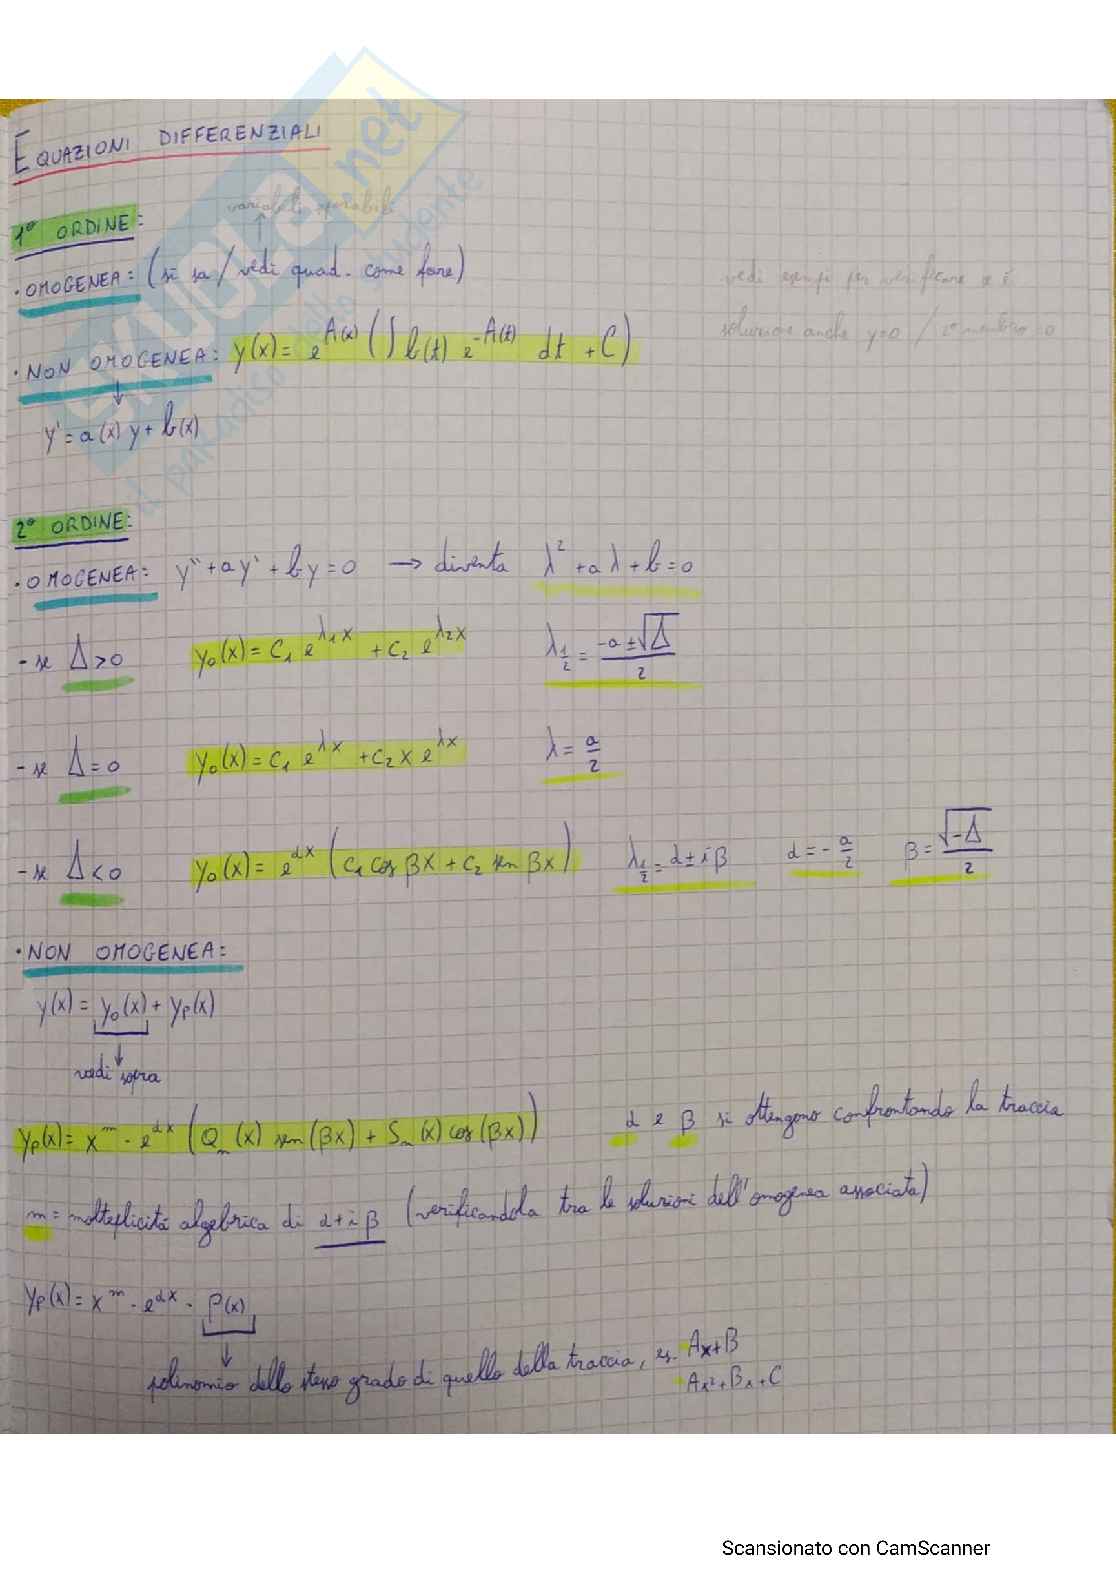 EQUAZIONI DIFFERENZIALI
variabili separabili
1° ORDINE:
• OMOGENEA: (si sa / vedi quad. come fare)
vedi esempi per verificare se è
soluzione anche y=0 / 2° membro
• NON OMOGENEA: y(x) = e^A(x) (∫ b(t) e^-A(t) dt + C)
↓
y' = a(x) y + b(x)
2° ORDINE:
• OMOGENEA: y'' + a y' + b y = 0 → diventa λ² + a λ + b = 0
- se Δ > 0 y₀(x) = C₁ e^λ₁x + C₂ e^λ₂x λ½ = (-a ± √Δ)/2
- se Δ = 0 y₀(x) = C₁ e^λx + C₂ x e^λx λ = a/2
- se Δ < 0 y₀(x) = e^αx (C₁ cos βx + C₂ sen βx) λ½ = α ± iβ α = -a/2 β = √-Δ/2
• NON OMOGENEA:
y(x) = y₀(x) + yp(x)
↓
vedi sopra
yp(x) = x^m · e^αx (Qn(x) sen(βx) + Sn(x) cos(βx)) α e β si ottengono confrontando la traccia
m = molteplicità algebrica di α + iβ (verificandola tra le soluzioni dell'omogenea associata)
yp(x) = x^m · e^αx · P(x)
↓
polinomio dello stesso grado di quello della traccia, es. Ax+B
Ax²+Bx+C
SKUOLA.net
il paradiso dello studente
Scansionato con CamScanner